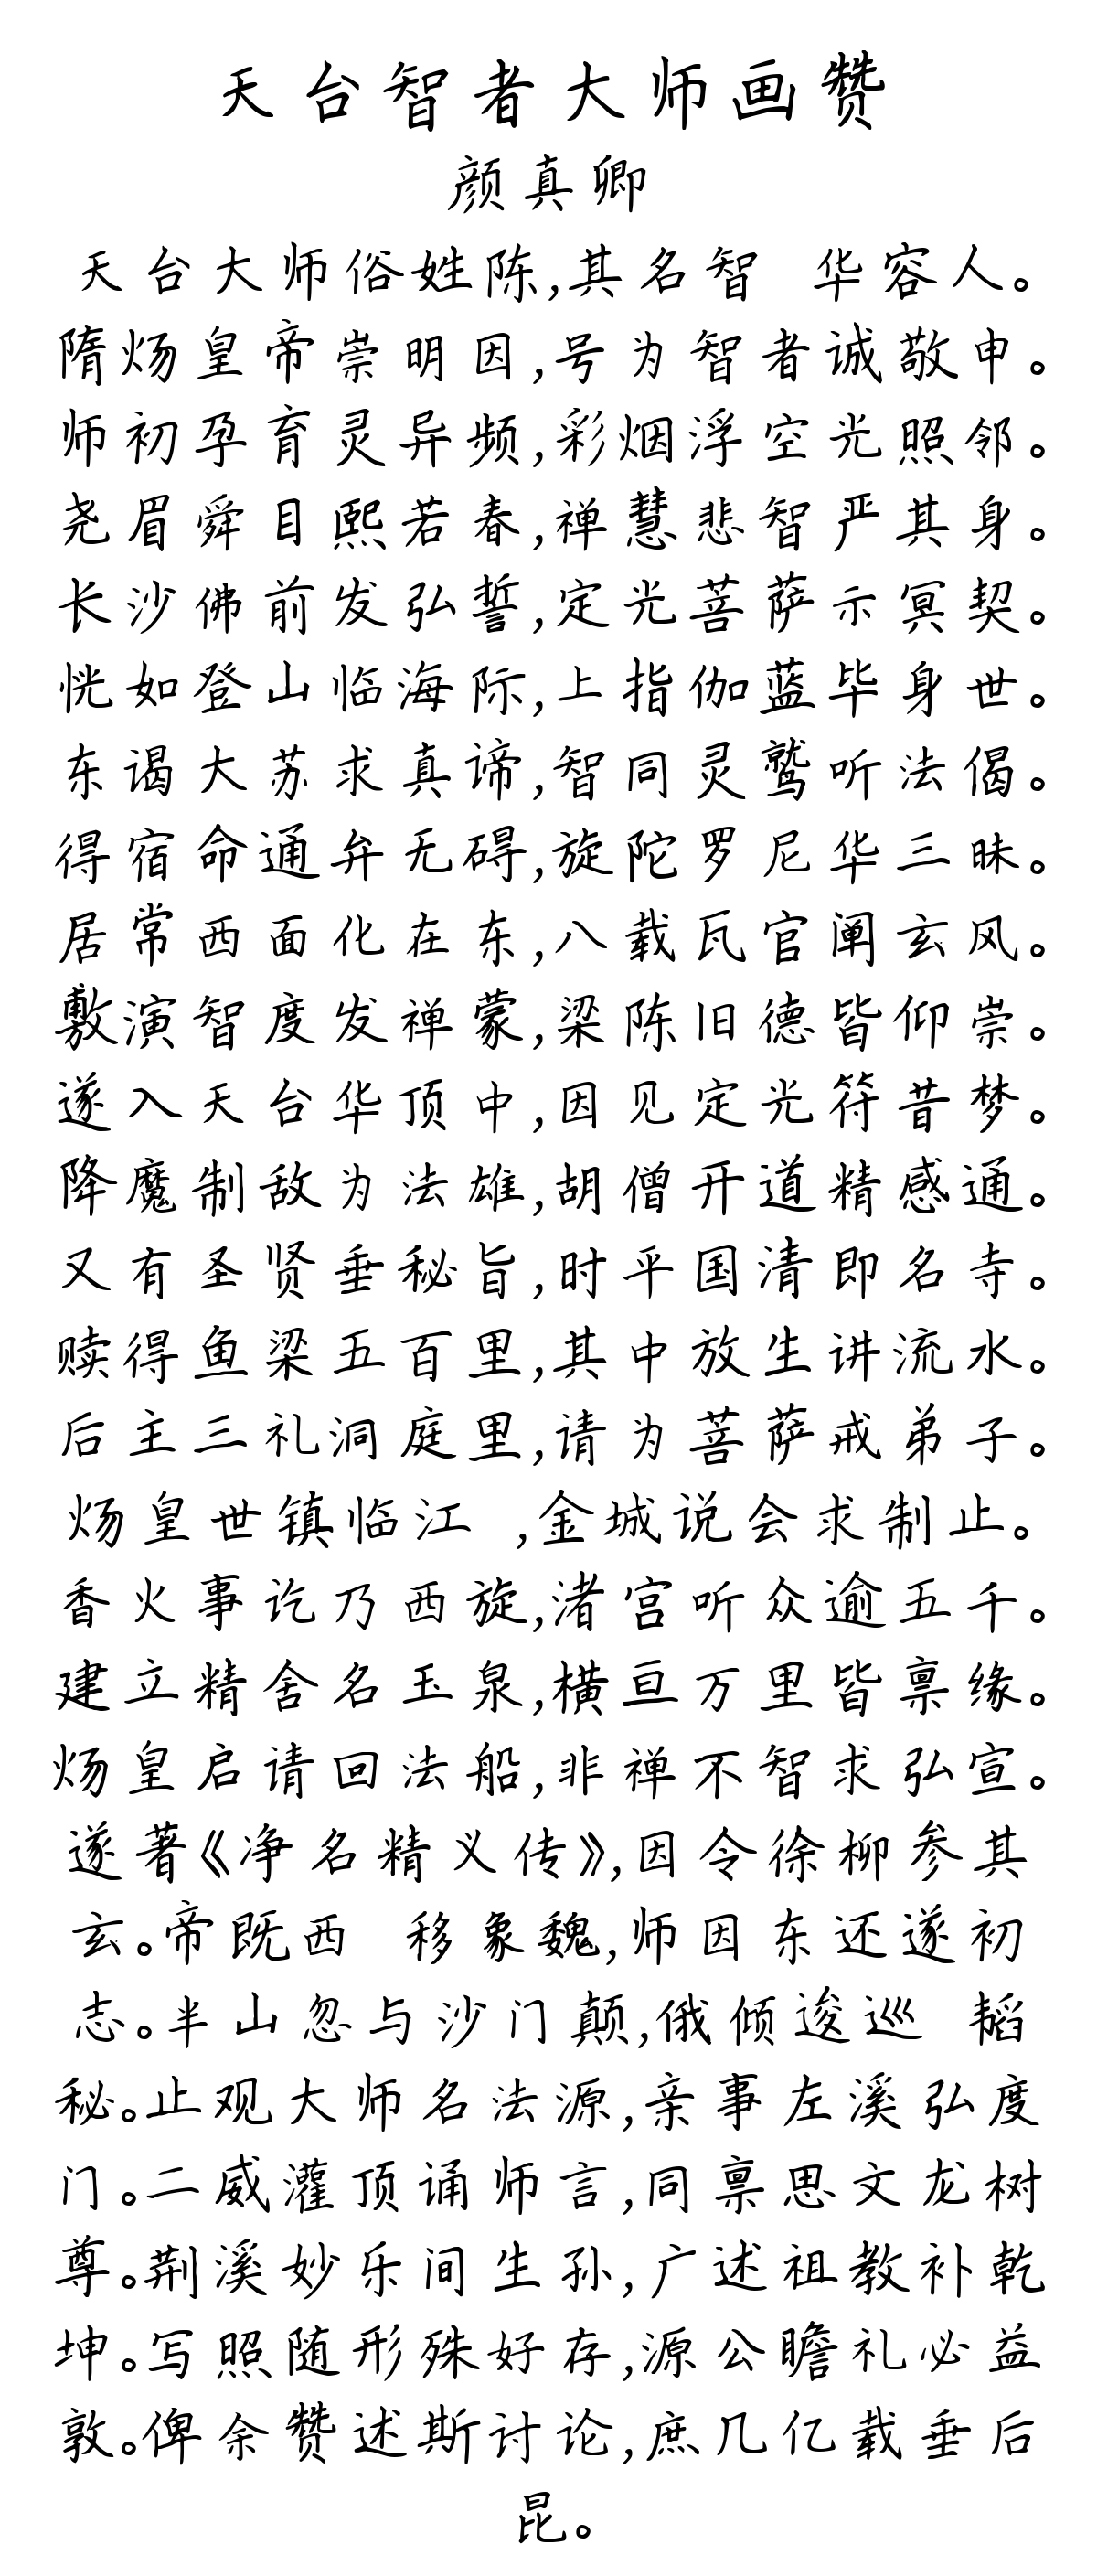 天台智者大师画赞
颜真卿
天台大师俗姓陈,其名智 华容人。
隋炀皇帝崇明因,号为智者诚敬申。
师初孕育灵异频,彩烟浮空光照邻。
尧眉舜目熙若春,禅慧悲智严其身。
长沙佛前发弘誓,定光菩萨示冥契。
恍如登山临海际,上指伽蓝毕身世。
东谒大苏求真谛,智同灵鹫听法偈。
得宿命通弁无碍,旋陀罗尼华三昧。
居常西面化在东,八载瓦官阐玄风。
敷演智度发禅蒙,梁陈旧德皆仰崇。
遂入天台华顶中,因见定光符昔梦。
降魔制敌为法雄,胡僧开道精感通。
又有圣贤垂秘旨,时平国清即名寺。
赎得鱼梁五百里,其中放生讲流水。
后主三礼洞庭里,请为菩萨戒弟子。
炀皇世镇临江 ,金城说会求制止。
香火事讫乃西旋,渚宫听众逾五千。
建立精舍名玉泉,横亘万里皆禀缘。
炀皇启请回法船,非禅不智求弘宣。
遂著《净名精义传》,因令徐柳参其
玄。帝既西 移象魏,师因东还遂初
志。半山忽与沙门颠,俄倾逡巡 韬
秘。止观大师名法源,亲事左溪弘度
门。二威灌顶诵师言,同禀思文龙树
尊。荆溪妙乐间生孙,广述祖教补乾
坤。写照随形殊好存,源公瞻礼必益
敦。俾余赞述斯讨论,庶几亿载垂后
昆。